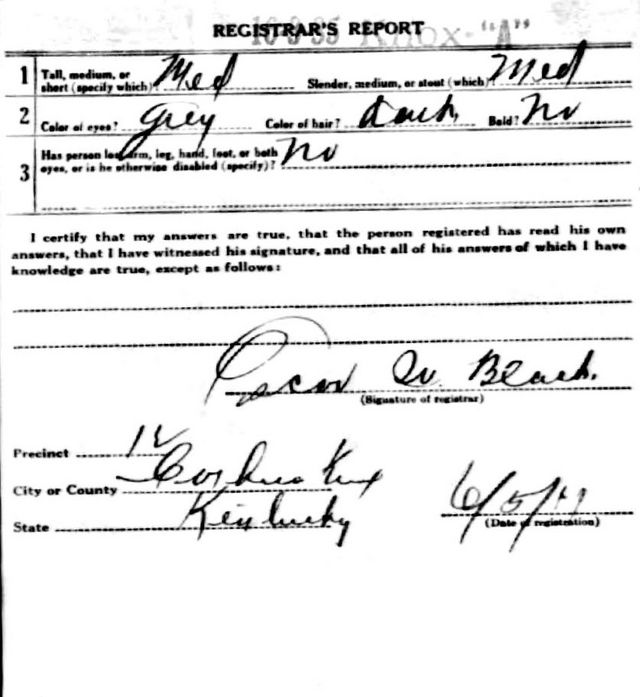 REGISTRAR'S REPORT
16-3-35 Knox "A"
1 Tall, medium, or short (specify which)? Med Slender, medium, or stout (which)? Med
2 Color of eyes? Grey Color of hair? dark Bald? No
3 Has person lost arm, leg, hand, foot, or both
eyes, or is he otherwise disabled (specify)? No
I certify that my answers are true, that the person registered has read his own
answers, that I have witnessed his signature, and that all of his answers of which I have
knowledge are true, except as follows:
Oscar W. Black.
(Signature of registrar)
Precinct 12
City or County
State Kentucky
6/5/17
(Date of registration)